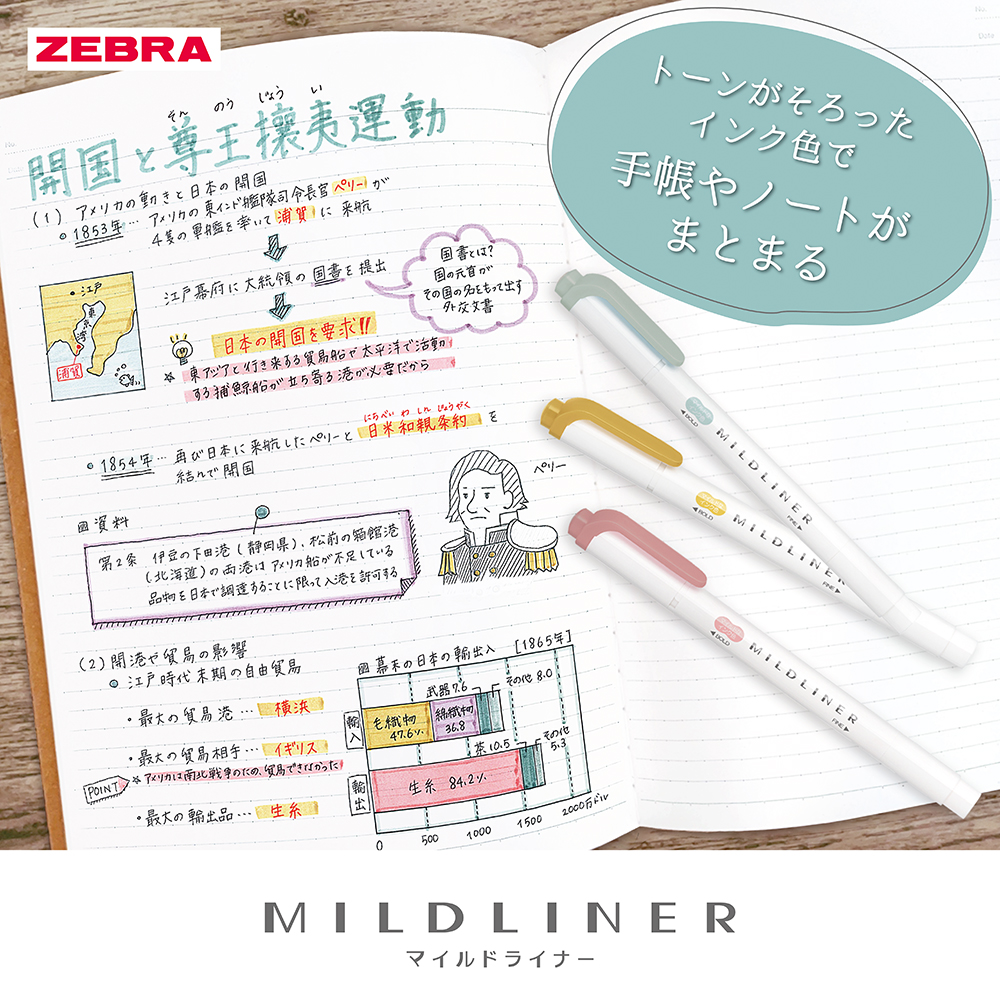 ZEBRA
トーンがそろった
インク色で
手帳やノートが
まとまる
そん のう じょう い
開国と尊王攘夷運動
(1) アメリカの動きと日本の開国
1853年… アメリカの東インド艦隊司令長官ペリーが
4隻の軍艦を率いて浦賀に来航
江戸幕府に大統領の国書を提出
国書とは?
国の元首が
その国の名をもって出す
外交文書
江戸
東京湾
浦賀
日本の開国を要求!!
☆東アジアと行き来する貿易船や太平洋で活動
する捕鯨船が立ち寄る港が必要だから
にちべい わ しん じょうやく
1854年… 再び日本に来航したペリーと日米和親条約を
結んで開国
ペリー
資料
第2条 伊豆の下田港(静岡県)、松前の箱館港
(北海道)の両港はアメリカ船が不足している
品物を日本で調達することに限って入港を許可する
(2) 開港や貿易の影響
江戸時代末期の自由貿易
・最大の貿易港… 横浜
・最大の貿易相手… イギリス
POINT
☆アメリカは南北戦争のため、貿易できなかった
・最大の輸出品… 生糸
幕末の日本の輸出入 [1865年]
武器7.6 その他 8.0
輸入 毛織物 47.6% 綿織物 36.8
茶10.5 その他 5.3
輸出 生糸 84.2%
0 500 1000 1500 2000万ドル
BOLD MILDLINER FINE
BOLD MILDLINER FINE
BOLD MILDLINER FINE
MILDLINER
マイルドライナー